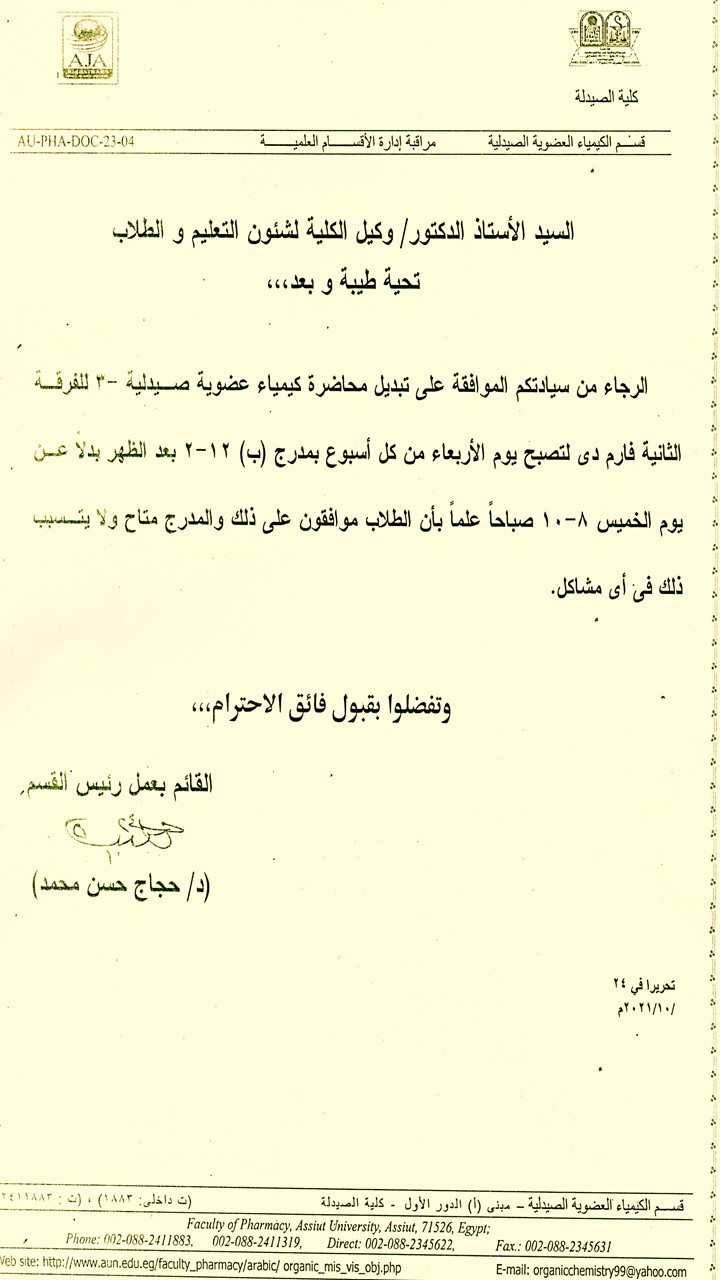 AJA
كلية الصيدلة
قسم الكيمياء العضوية الصيدلية مراقبة إدارة الأقسام العلمية AU-PHA-DOC-23-04
السيد الأستاذ الدكتور/ وكيل الكلية لشئون التعليم و الطلاب
تحية طيبة و بعد،،،
الرجاء من سيادتكم الموافقة على تبديل محاضرة كيمياء عضوية صيدلية -٣ للفرقة
الثانية فارم دى لتصبح يوم الأربعاء من كل أسبوع بمدرج (ب) ١٢-٢ بعد الظهر بدلاً عن
يوم الخميس ٨-١٠ صباحاً علماً بأن الطلاب موافقون على ذلك والمدرج متاح ولا يتسبب
ذلك فى أى مشاكل.
وتفضلوا بقبول فائق الاحترام،،،
القائم بعمل رئيس القسم
(د/ حجاج حسن محمد)
تحريرا في ٢٤
/٢٠٢١/١٠م
قسم الكيمياء العضوية الصيدلية – مبنى (أ) الدور الأول - كلية الصيدلة (ت داخلى: ١٨٨٣) ، (ت : ٢٤١١٨٨٣
Faculty of Pharmacy, Assiut University, Assiut, 71526, Egypt;
Phone: 002-088-2411883, 002-088-2411319, Direct: 002-088-2345622, Fax.: 002-088-2345631
Web site: http://www.aun.edu.eg/faculty_pharmacy/arabic/ organic_mis_vis_obj.php E-mail: organicchemistry99@yahoo.com